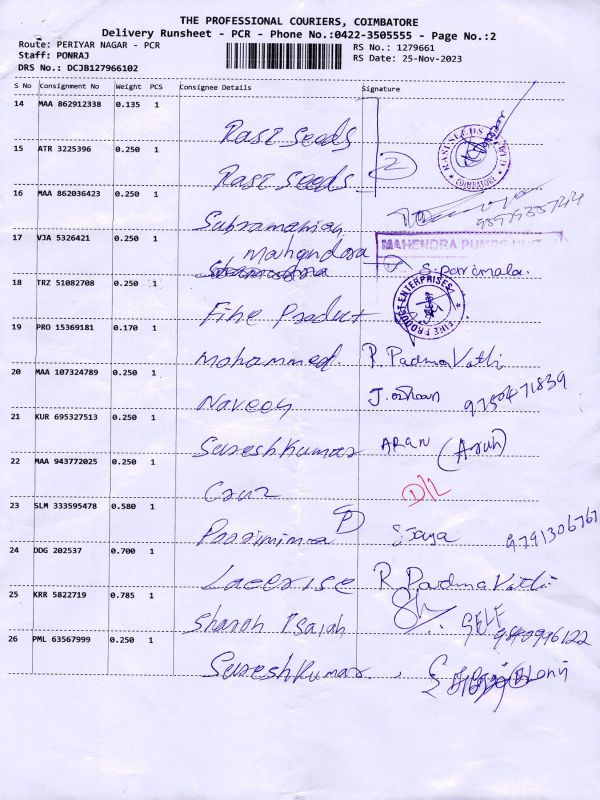 THE PROFESSIONAL COURIERS, COIMBATORE
Delivery Runsheet - PCR - Phone No.:0422-3505555 - Page No.:2
Route: PERIYAR NAGAR - PCR
RS No.: 1279661
Staff: PONRAJ
RS Date: 25-Nov-2023
DRS No.: DCJB127966102
S No Consignment No Weight PCS Consignee Details Signature
14 MAA 862912338 0.135 1
Rasi seeds
15 ATR 3225396 0.250 1
Rasi seeds 2
RASI SEEDS COIMBATORE
16 MAA 862036423 0.250 1
Subramanian
17 VJA 5326421 0.250 1
Mahendra
MAHENDRA PUMPS
S. Parimala.
18 TRZ 51082708 0.250 1
Fine Product
FINE PRODUCT ENTERPRISES
19 PRO 15369181 0.170 1
Mohammed. P. PadmaVathi
20 MAA 107324789 0.250 1
Naveen 9750471839
21 KUR 695327513 0.250 1
SureshKumar ARAN (Arun)
22 MAA 943772025 0.250 1
Cruz D/L
23 SLM 333595478 0.580 1
9791306767
24 DDG 202537 0.700 1
R PadmaVathi
25 KRR 5822719 0.785 1
Sharon Isaiah SELF
26 PML 63567999 0.250 1
SureshKumar.